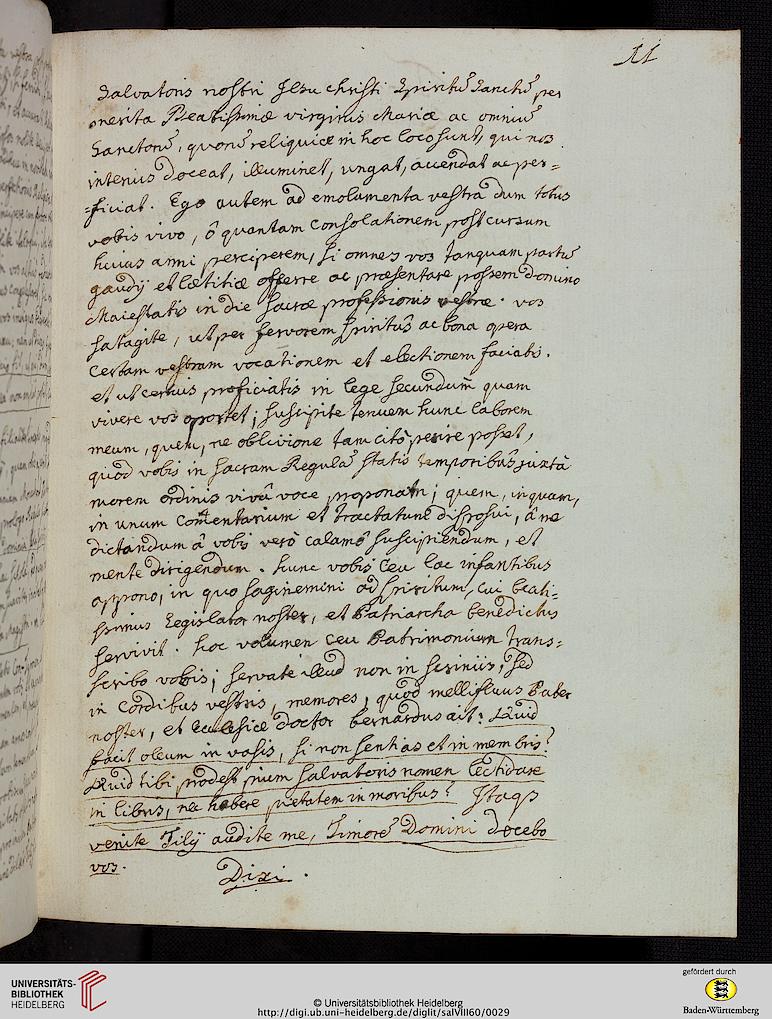 11
Salvatoris nostri Jesu Christi Spiritũ Sanctũ, per
merita Beatissimæ virginis Mariæ ac omniũ
Sanctorũ, quorũ reliquiæ in hoc loco sunt, qui nos
interius doceat, illuminet, ungat, accendat ac per=
=ficiat. Ego autem ad emolumenta vestra dum totus
vobis vivo, ô quantam consolationem post cursum
huius anni perciperem, si omnes vos tanquam partũ
gaudij et lætitiæ offerre ac præsentare possem Domino
Maiestatis in die sacræ professionis vestræ. vos
satagite, ut per fervorem spiritûs ac bona opera
certam vestram vocationem et electionem faciatis.
et ut certius proficiatis in lege secundum quam
vivere vos oportet; suscipite tenuem hunc laborem
meum, quem, ne oblivione tam citò perire posset,
quòd vobis in sacram Regulã statis temporibus juxtà
morem ordinis vivâ voce proponam; quem, inquam,
in unum Commentarium et tractatum disposui, â me
dictandum â vobis verò calamô suscipiendum, et
mente dirigendum. hunc vobis ceu lac infantibus
appono, in quo saginemini ad spiritum, cui beati=
ssimus Legislator noster, et Patriarcha benedictus
servivit. hoc volumen ceu Patrimonium trans=
scribo vobis; servate illud non in scriniis, sed
in cordibus vestris, memores, quòd mellifluus Pater
noster, et Ecclesiæ doctor bernardus ait: Quid
facit oleum in vasis, si non sentias et in membris?
Quid tibi prodest pium salvatoris nomen lectitare
in libris, nec habere pietatem in moribus? Itaqȝ
venite Filij audite me, Timorẽ Domini docebo
vos.
Dixi.
UNIVERSITÄTS-
BIBLIOTHEK
HEIDELBERG
© Universitätsbibliothek Heidelberg
http://digi.ub.uni-heidelberg.de/diglit/salVIII60/0029
gefördert durch
Baden-Württemberg